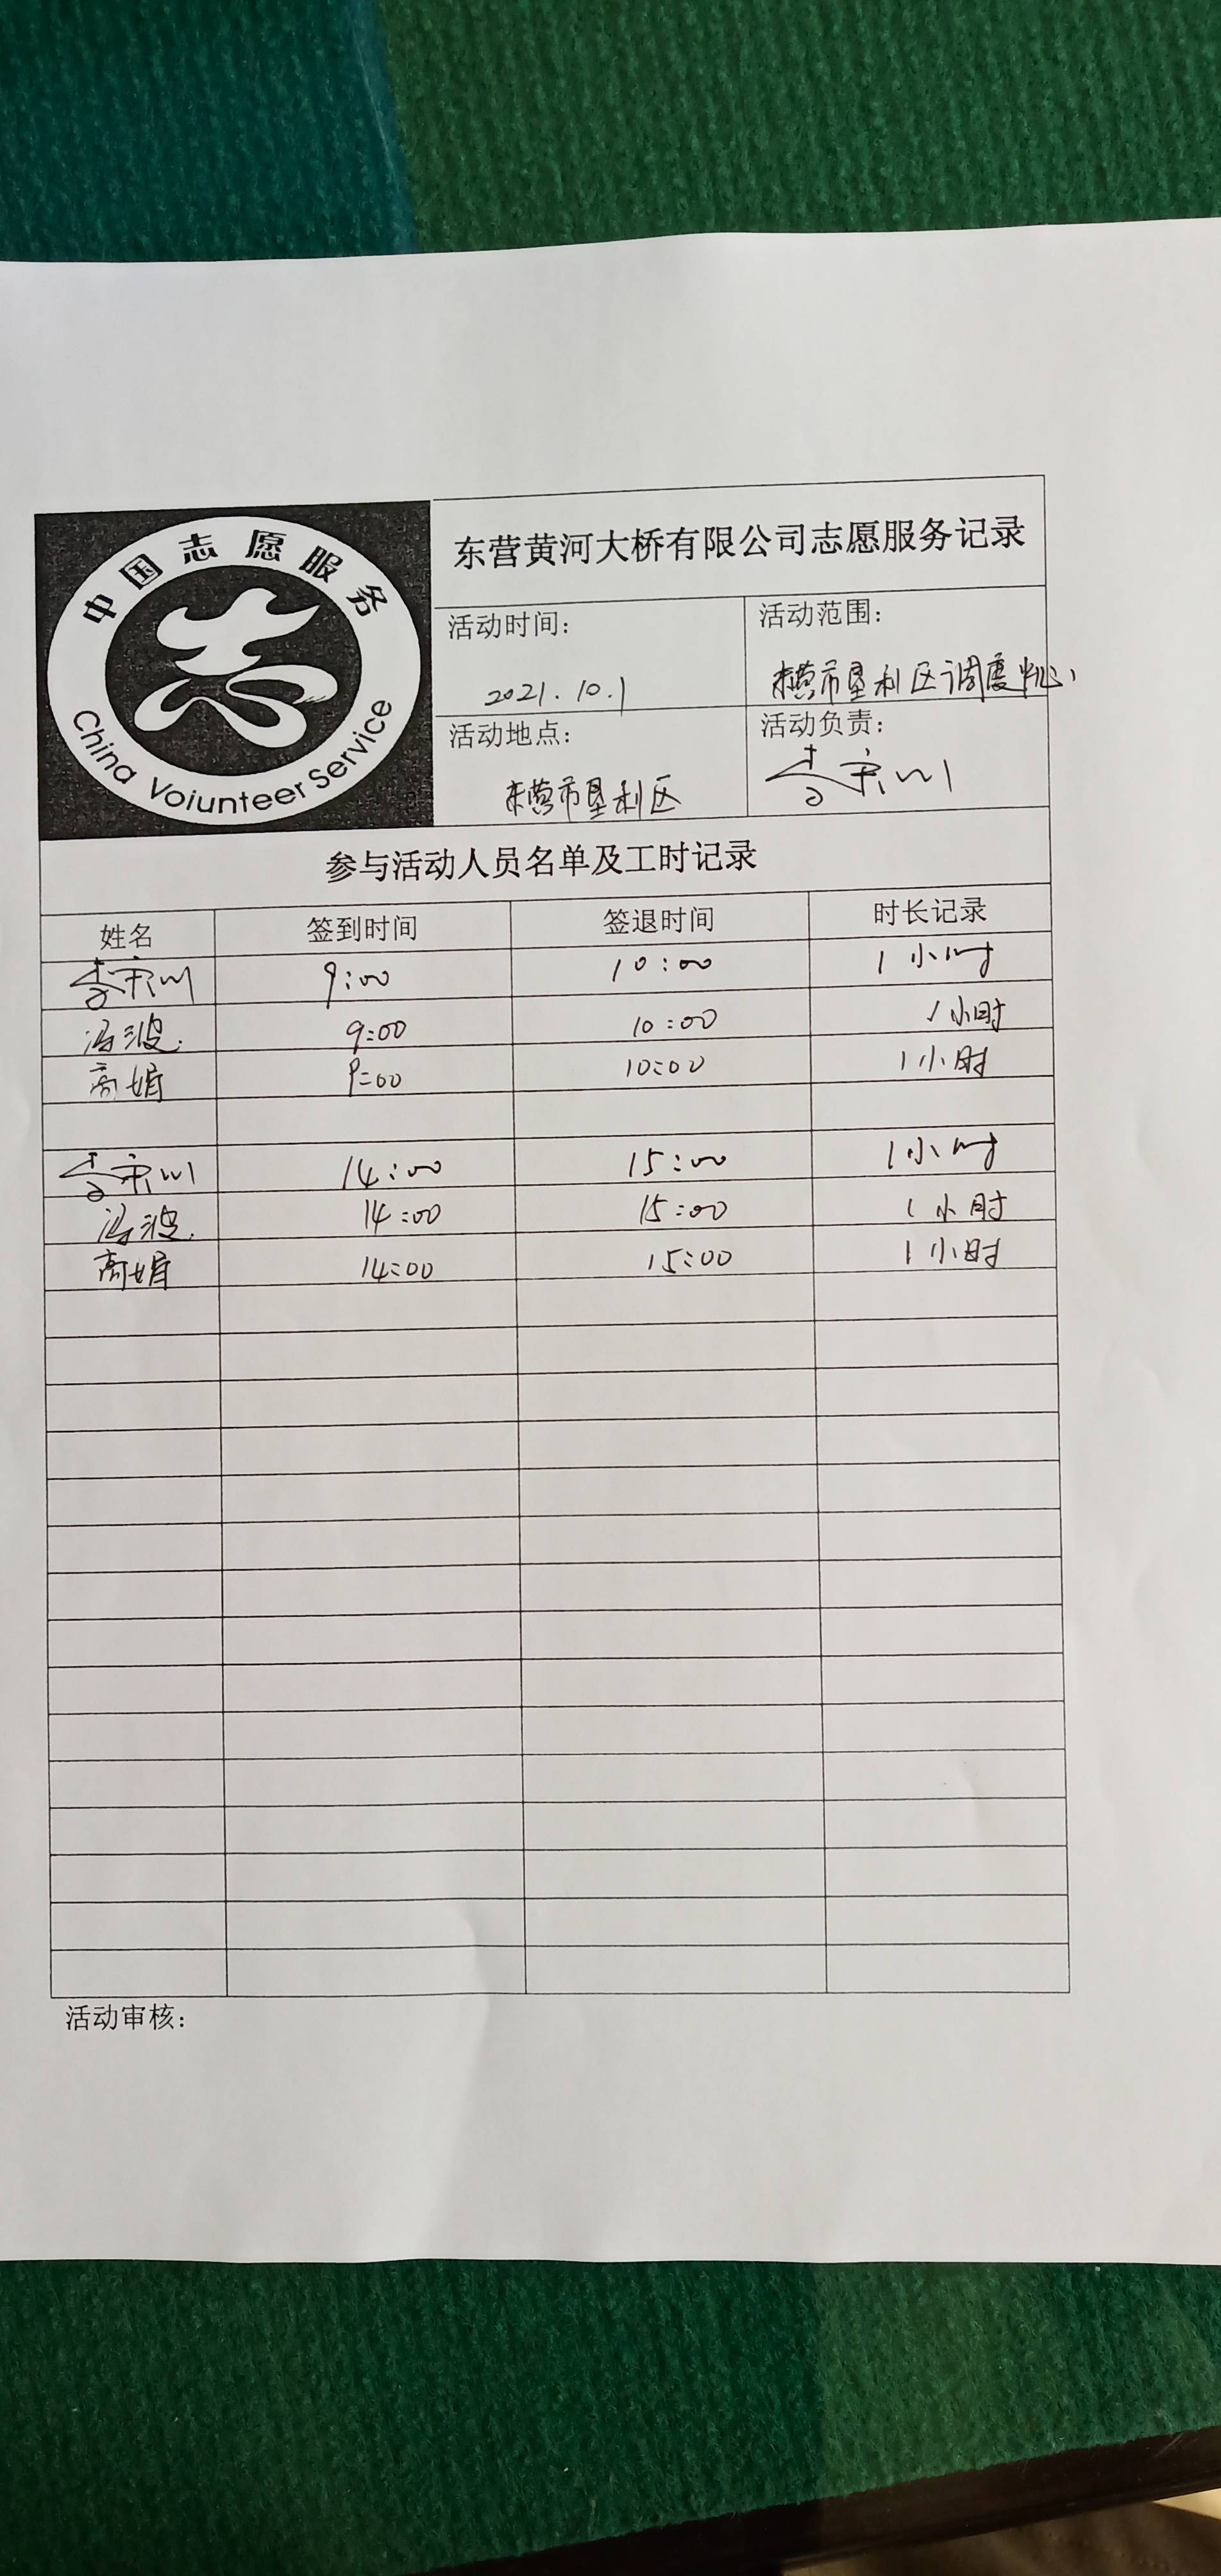 中国志愿服务
China Voiunteer Service
东营黄河大桥有限公司志愿服务记录
活动时间: 活动范围:
2021.10.1 东营市垦利区调度中心
活动地点: 活动负责:
东营市垦利区 李宗川
参与活动人员名单及工时记录
姓名 签到时间 签退时间 时长记录
李宗川 9:00 10:00 1小时
冯波 9:00 10:00 1小时
高娟 9:00 10:00 1小时
李宗川 14:00 15:00 1小时
冯波 14:00 15:00 1小时
高娟 14:00 15:00 1小时
活动审核: